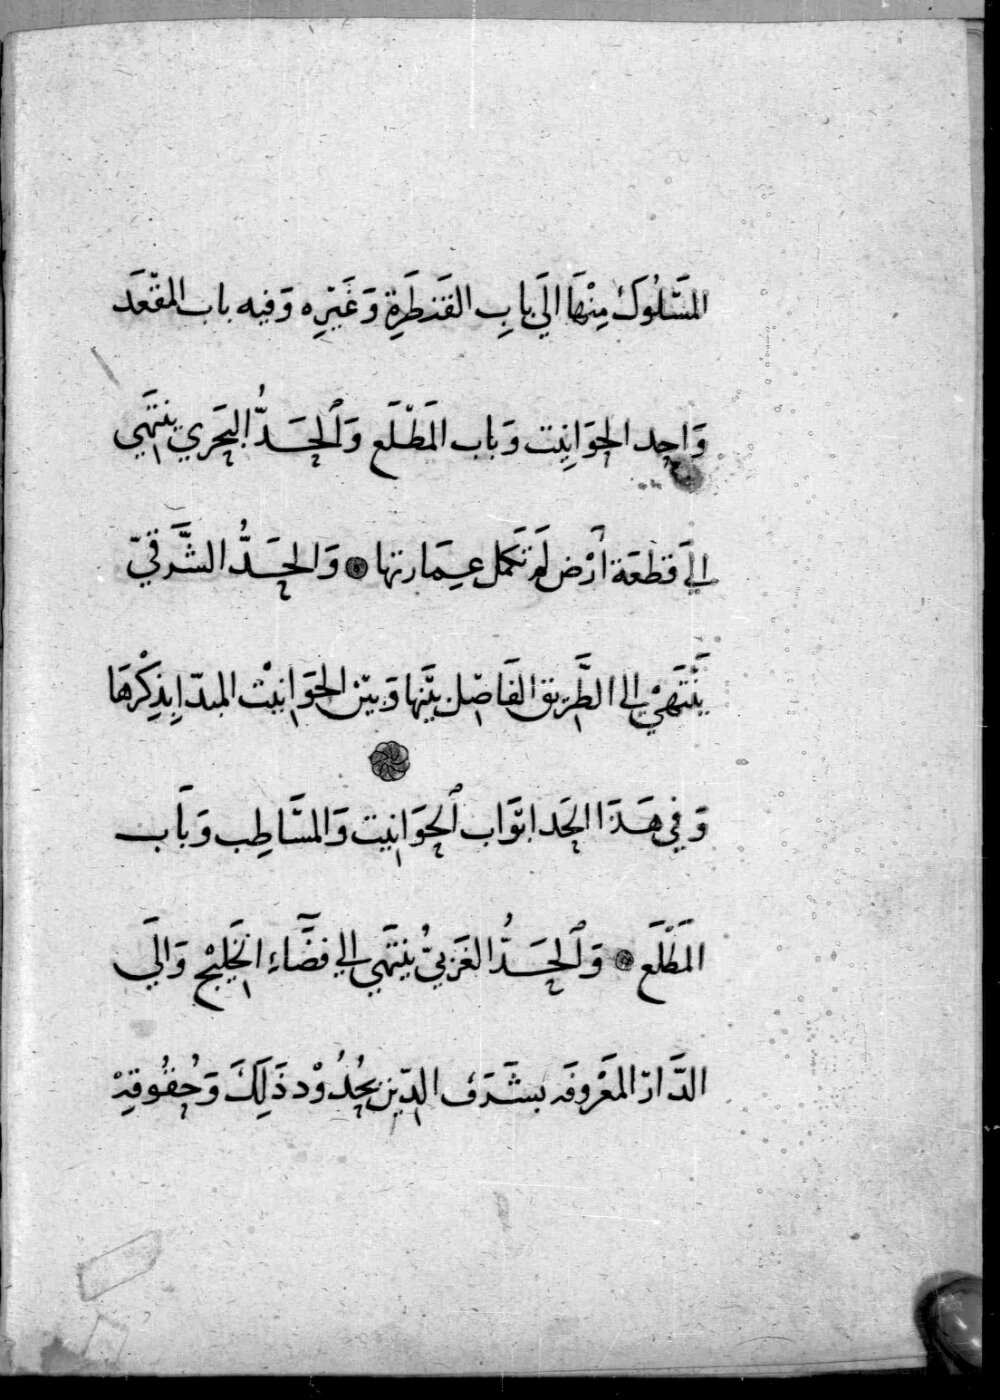 المَسْلُوكُ مِنْهَا الَي بابِ القَنطَرةِ وَغَيْرِه وَفيه باب المقْعَد
وَاحِد الحوَانِيت وَبَاب المَطْلَع وَالحَدُّ البَحَري ينتَهِي
الَي قطْعَة أَرْض لَم تَكمل عِمَارتها وَالحَدُّ الشَّرقيّ
يَنْتَهِيْ الي الطَّرِيق الفَاصِل بيْنها وَبيْن الحَوَانيْت المبدَّا بِذِكْرهَا
وَفي هَذَا الحَد ابوَاب الحوَانِيت وَالمسَاطِب وَبَاب
المَطْلَع وَالحَدُّ الغَربيُّ ينتَهِي الي فضَآءِ الخَلِيْج وَالَي
الدَّار المعْرُوفَه بشَرَف الدّين بحُدُوْد ذَلِكَ وَحُقُوقِهْ